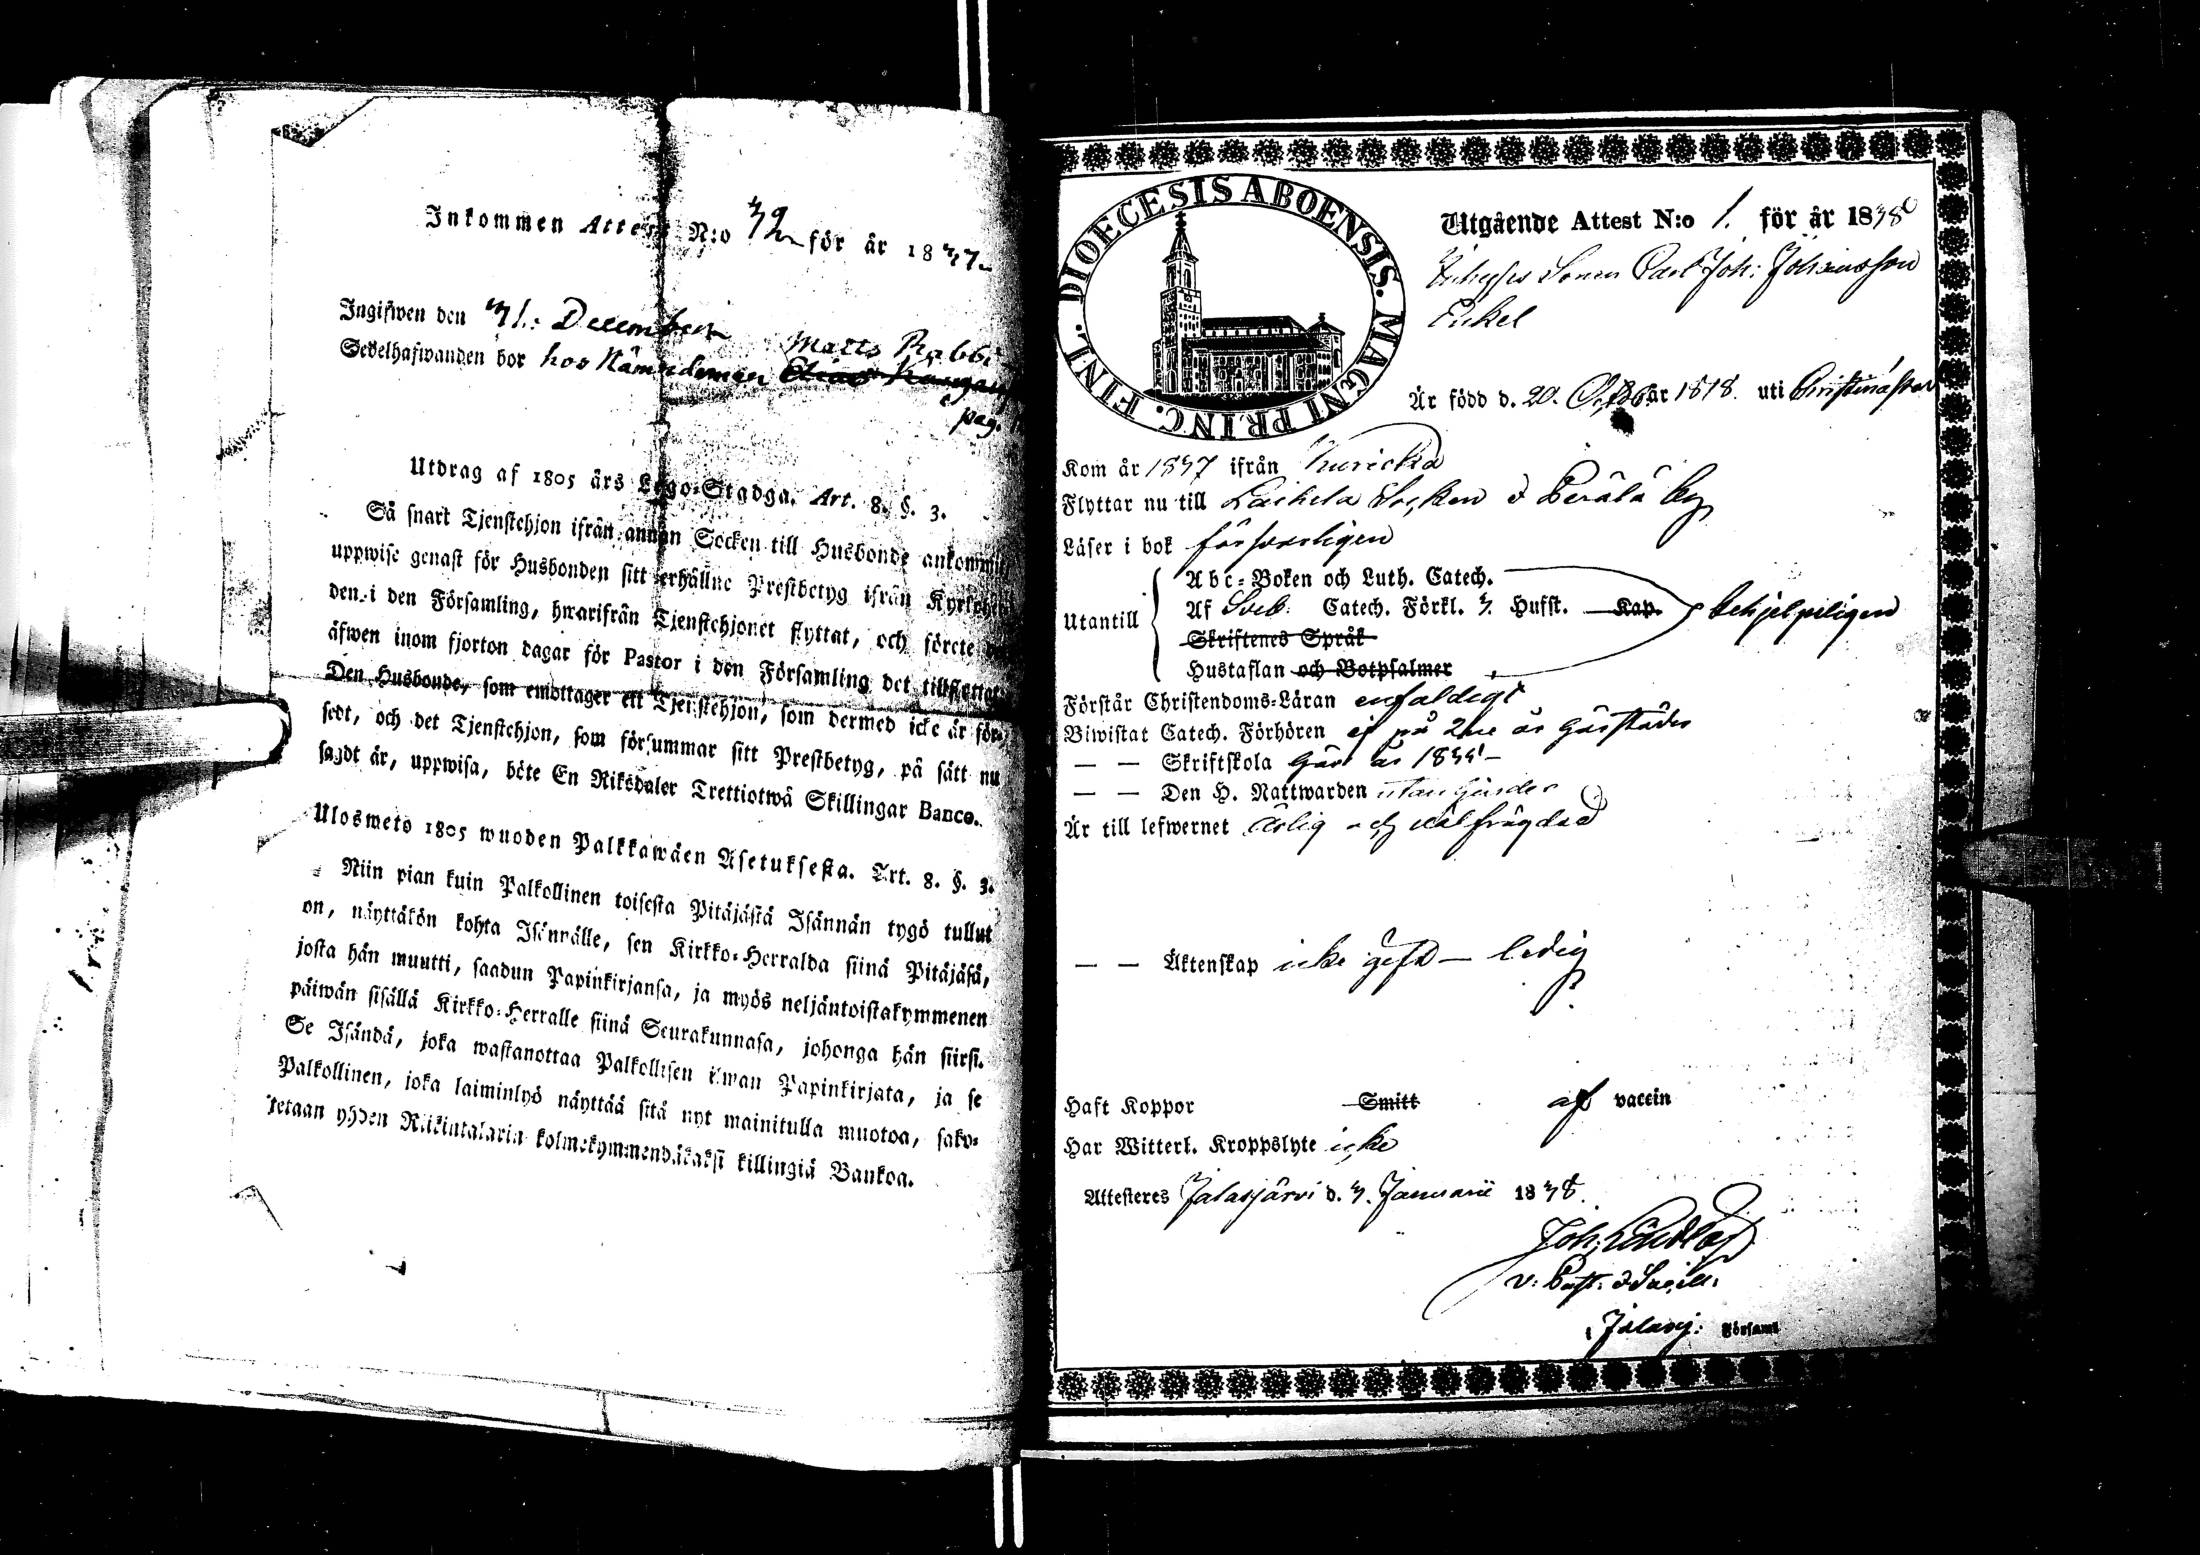 Inkommen Attest N:o 32 för år 1837.
Ingifwen den 31: December
Matts Rabbi
Sedelhafwanden bor hos Nämndeman
pag.
Utdrag af 1805 års Lego-Stadga. Art. 8. §. 3.
Så snart Tjenstehjon ifrån annan Socken till Husbonde ankommit
uppwise genast för Husbonden sitt erhållne Prestbetyg ifrån
den i den Församling, hwarifrån Tjenstehjonet flyttat, och förete
äfwen inom fjorton dagar för Pastor i den Församling det tillflyttat
Den Husbonde, som emottager ett Tjenstehjon, som dermed icke är för-
sedt, och det Tjenstehjon, som försummar sitt Prestbetyg, på sätt nu
sagdt är, uppwisa, böte En Riksdaler Trettiotwå Skillingar Banco.
Ulosweto 1805 wuoden Palkkawäen Asetuksesta. Art. 8. §. 3.
Niin pian kuin Palkollinen toisesta Pitäjästä Isännän tygö tullut
on, näyttäkön kohta Isännälle, sen Kirkko-Herralda siinä Pitäjäsä,
josta hän muutti, saadun Papinkirjansa, ja myös neljäntoistakymmenen
päiwän sisällä Kirkko-Herralle siinä Seurakunnasa, johonga hän siirsi.
Se Isändä, joka wastanottaa Palkollisen ilman Papinkirjata, ja se
Palkollinen, joka laiminlyö näyttää sitä nyt mainitulla muotoa, sako-
tetaan yhden Riikintalarin kolmekymmendäkaksi killingiä Bankoa.
FINL. DIOECESIS ABOENSIS. MAGNI PRINC.
Utgående Attest N:o 1. för år 1838
Sonen Carl Joh: Johansson
Är född d. 20. Octob år 1818. uti Christinæstad
Kom år 1837 ifrån Kurickka
Flyttar nu till Laihela Socken & Perälä by
Läser i bok försvarligen
Utantill
Abc-Boken och Luth. Catech.
Af Sveb. Catech. Förkl. 3. Hufst. Kap.
behjelpeligen
Skriftenes Språk
Hustaflan och Botpsalmer
Förstår Christendoms-Läran enfaldigt
Biwistat Catech. Förhören ej på 2ne år härstädes
— — Skriftskola
— — Den H. Nattwarden
Är till lefwernet ärlig och välfrägdad
— — Äktenskap icke gift — ledig
Haft Koppor Smitt af vaccin
Har Witterl. Kroppslyte icke
Attesteres Jalasjärvi d. 3. Januarii 1838.
v: Past: & Sacell:
i Jalasj: Församl